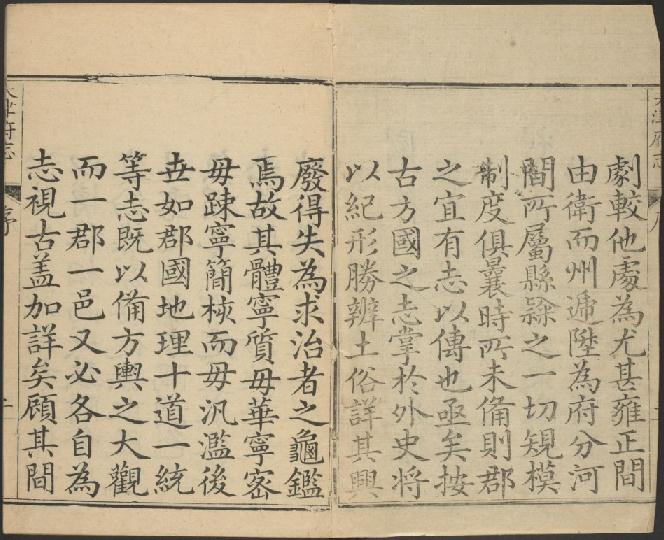 劇較他處為尤甚雍正間
由衛而州遞陞為府分河
間所屬縣隸之一切規模
制度俱曩時所未備則郡
之宜有志以傳也亟矣按
古方國之志掌於外史將
以紀形勝辨土俗詳其興
廢得失為求治者之龜鑑
焉故其體寧質毋華寧密
毋踈寧簡核而毋汎濫後
世如郡國地理十道一統
等志既以備方輿之大觀
而一郡一邑又必各自為
志視古盖加詳矣顧其間
天津府志
序